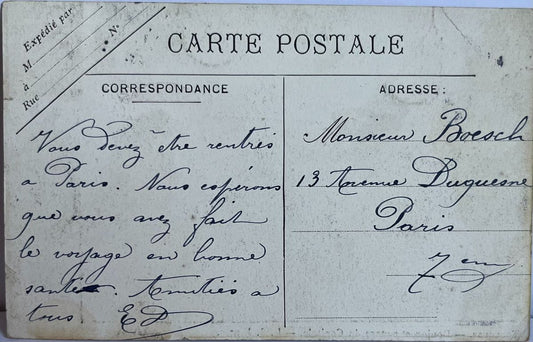 Expédié par
M N.
à
Rue
CARTE POSTALE
CORRESPONDANCE
Vous devez être rentrés
a Paris. Nous espérons
que vous avez fait
le voyage en bonne
santé. Amitiés a
tous. ED
ADRESSE :
Monsieur Boesch
13 Avenue Duquesne
Paris
7em